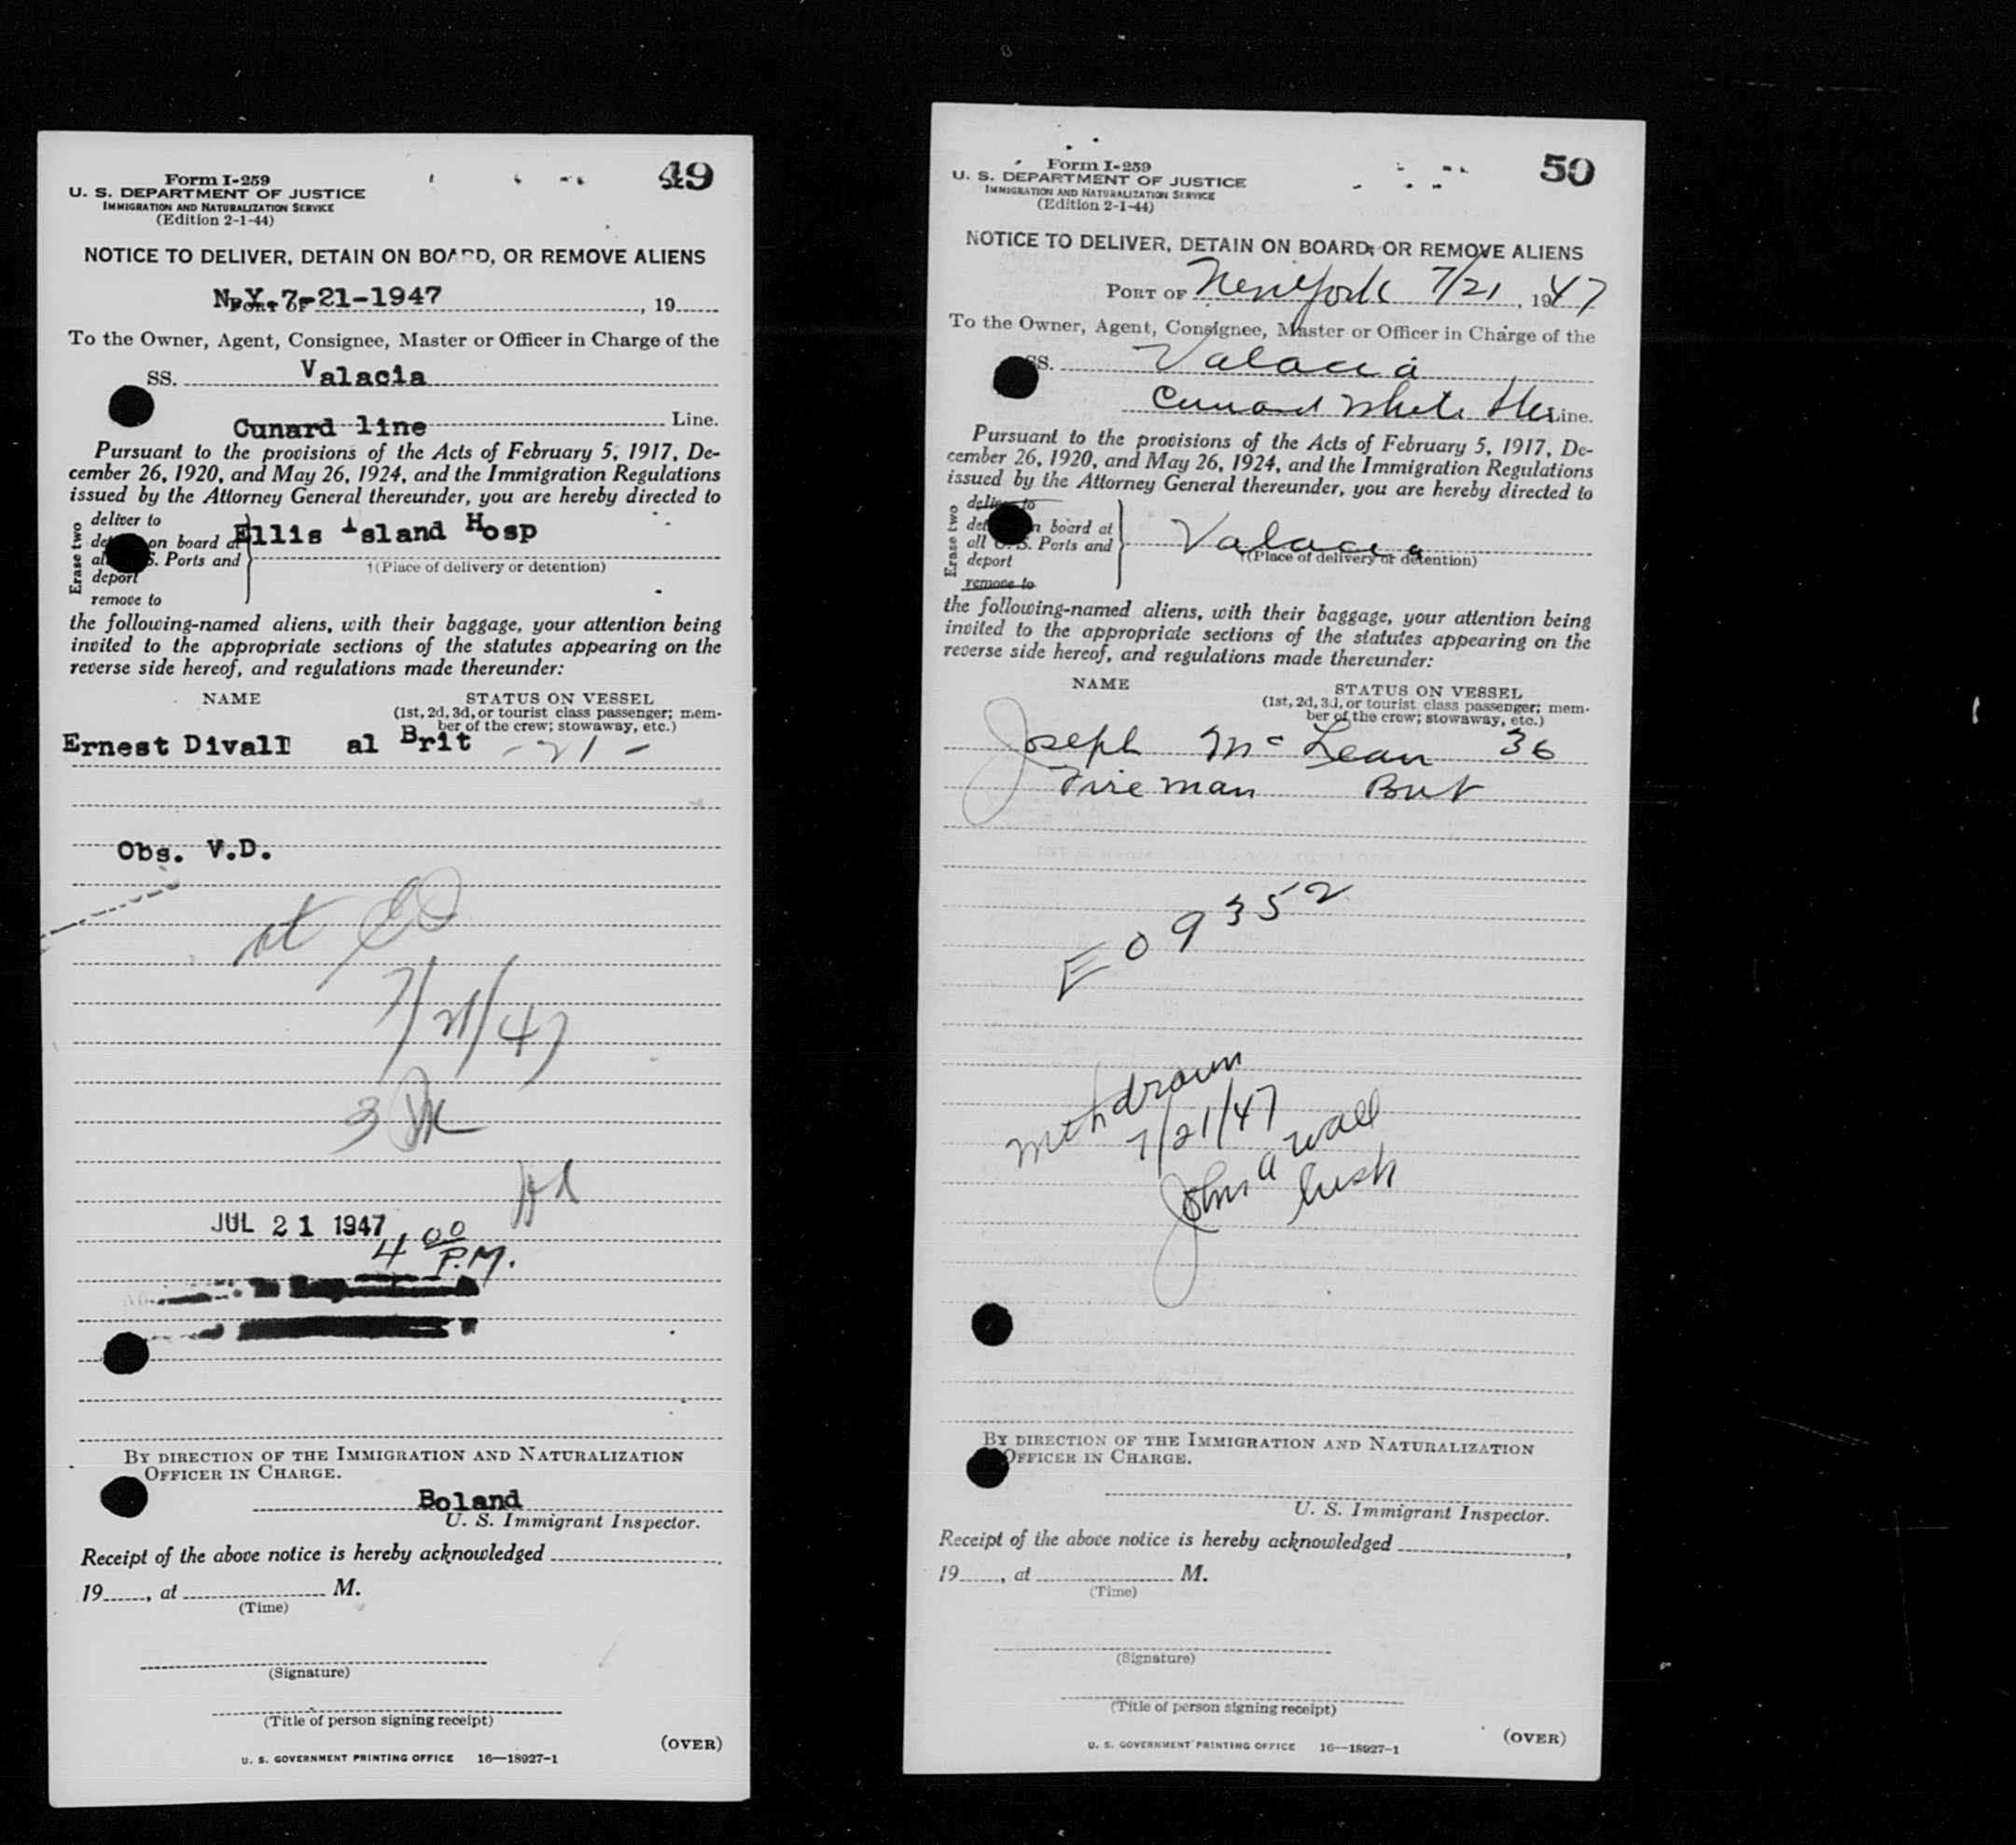 49
Form I-259
U. S. DEPARTMENT OF JUSTICE
IMMIGRATION AND NATURALIZATION SERVICE
(Edition 2-1-44)
NOTICE TO DELIVER, DETAIN ON BOARD, OR REMOVE ALIENS
N.Y. 7-21-1947, 19
To the Owner, Agent, Consignee, Master or Officer in Charge of the
SS. Valacia
Cunard line Line.
Pursuant to the provisions of the Acts of February 5, 1917, De-
cember 26, 1920, and May 26, 1924, and the Immigration Regulations
issued by the Attorney General thereunder, you are hereby directed to
Erase two
deliver to
on board at
Ports and
deport
remove to
Ellis Island Hosp
†(Place of delivery or detention)
the following-named aliens, with their baggage, your attention being
invited to the appropriate sections of the statutes appearing on the
reverse side hereof, and regulations made thereunder:
NAME STATUS ON VESSEL
(1st, 2d, 3d, or tourist class passenger; mem-
ber of the crew; stowaway, etc.)
Ernest Divall al Brit - 21 -
Obs. V.D.
7/21/47
3
JUL 21 1947
4 00 P.M.
BY DIRECTION OF THE IMMIGRATION AND NATURALIZATION
OFFICER IN CHARGE.
Boland
U. S. Immigrant Inspector.
Receipt of the above notice is hereby acknowledged
19, at M.
(Time)
(Signature)
(Title of person signing receipt)
(OVER)
U. S. GOVERNMENT PRINTING OFFICE 16—18927-1
50
Form I-259
U. S. DEPARTMENT OF JUSTICE
IMMIGRATION AND NATURALIZATION SERVICE
(Edition 2-1-44)
NOTICE TO DELIVER, DETAIN ON BOARD, OR REMOVE ALIENS
PORT OF New York 7/21, 1947
To the Owner, Agent, Consignee, Master or Officer in Charge of the
SS. Valacia
Cunard White Line.
Pursuant to the provisions of the Acts of February 5, 1917, De-
cember 26, 1920, and May 26, 1924, and the Immigration Regulations
issued by the Attorney General thereunder, you are hereby directed to
Erase two
deliver to
on board at
all U. S. Ports and
deport
remove to
Valacia
†(Place of delivery or detention)
the following-named aliens, with their baggage, your attention being
invited to the appropriate sections of the statutes appearing on the
reverse side hereof, and regulations made thereunder:
NAME STATUS ON VESSEL
(1st, 2d, 3d, or tourist class passenger; mem-
ber of the crew; stowaway, etc.)
Joseph McLean 36
Fireman Brit
E09352
Withdrawn
7/21/47
John A Wall
BY DIRECTION OF THE IMMIGRATION AND NATURALIZATION
OFFICER IN CHARGE.
U. S. Immigrant Inspector.
Receipt of the above notice is hereby acknowledged,
19, at M.
(Time)
(Signature)
(Title of person signing receipt)
(OVER)
U. S. GOVERNMENT PRINTING OFFICE 16—18927-1